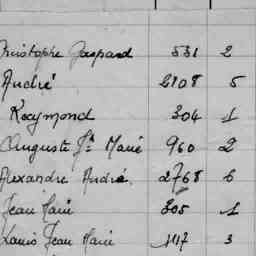 Christophe Gaspard 531 2
André 2108 5
Raymond 304 1
Auguste Jn Marie 960 2
Alexandre André. 2768 6
Jean Marie 305 1
Louis Jean Marie 1117 3